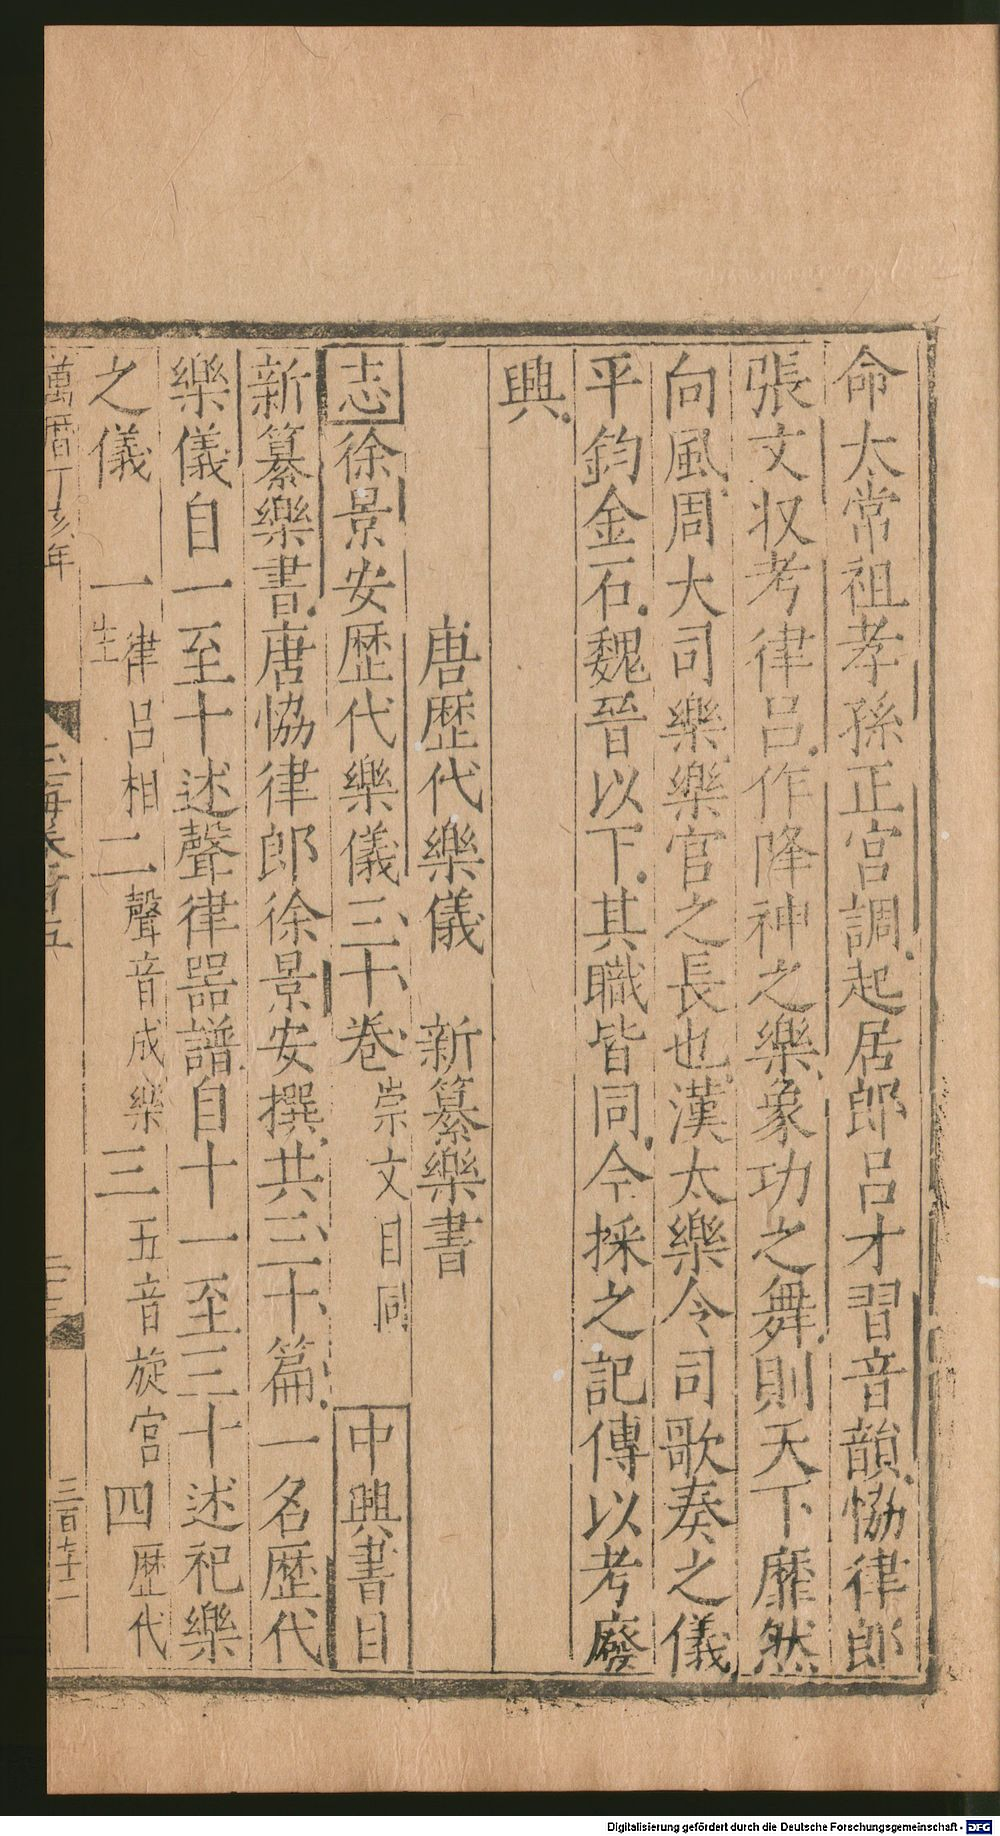 命太常祖孝孫正宮調起居郎呂才習音韻恊律郎
張文収考律呂作降神之樂象功之舞則天下靡然
向風周大司樂樂官之長也漢太樂令司歌奏之儀
平鈞金石魏晉以下其職皆同今採之記傳以考廢
興
唐歴代樂儀　新纂樂書
志徐景安歴代樂儀三十卷崇文目同　中興書目
新纂樂書唐恊律郎徐景安撰共三十篇一名歴代
樂儀自一至十述聲律器譜自十一至三十述祀樂
之儀　一律呂相生二聲音成樂三五音旋宮四歴代
萬曆丁亥年
三百七十二
Digitalisierung gefördert durch die Deutsche Forschungsgemeinschaft - DFG